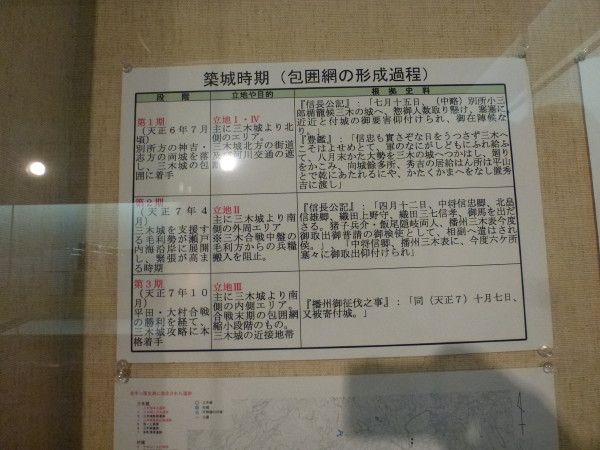 築城時期（包囲網の形成過程）
段　階
立地や目的
根　拠　史　料
第１期
（天正６年７月頃）
別所方の神吉・
志方の両城を落
し、三木城の包
囲に着手
立地Ⅰ・Ⅳ
主に三木城より北
側のエリア。
三木城北方の街道
及び河川交通の遮
『信長公記』：「七月十五日、（中略）別所小三
郎楯籠候三木の城へ、惣御人数取り懸け、塞塞に
近近と付城の御要害仰付けられ、御在陣候な
り。」
『豊鑑』：「信忠も實さぞな日をうつさず三木へ
こそはよせめとて、軍のなにがしどもにふれ給ふ
て、八月末かた大勢を三木の城へつかはし、廻り
をかこみ、向城餘多所、秀吉の居給はん所は平山
とて乾にあたれるにや、かたくかまへをなし置秀
吉に渡し」
第２期
（天正７年４
月）
三木城を支援す
る毛利勢が瀬戸
内海沿岸に展開
し、緊張が高ま
る時期
立地Ⅱ
主に三木城より南
側の外周エリア
※三木合戦中盤の
毛利方からの兵糧
搬入を阻止。
『信長公記』：「四月十二日、中将信忠卿、北畠
信雄卿、織田上野守、織田三七信孝、御馬を出だ
さる。猪子兵介・飯尾隠岐両人、播州三木表今度
御取出御普請の御検使として、相副へ遣はされ
候。」「中将信卿、播州三木表に、今度六ケ所
塞々に御取出仰付けられ」
第３期
（天正７年10
月）
平田・大村合戦
の勝利を経て、
三木城攻略に本
格着手
立地Ⅲ
主に三木城より南
側の内側エリア。
合戦末期の包囲網
縮小段階のもの。
三木城の近接地帯
『播州御征伐之事』：「同（天正７）十月七日、
又被寄付城。」